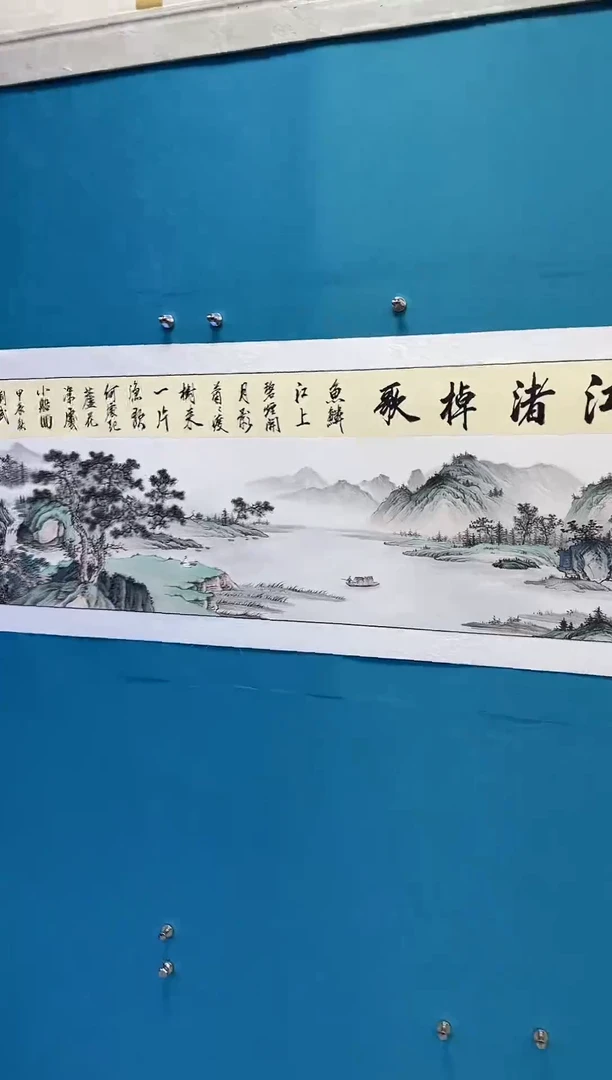 江渚棹歌
魚鱗
江上
碧煙開
月影
渡
樹來
一片
漁歌
何處起
蘆花
深處
小船回
甲辰秋